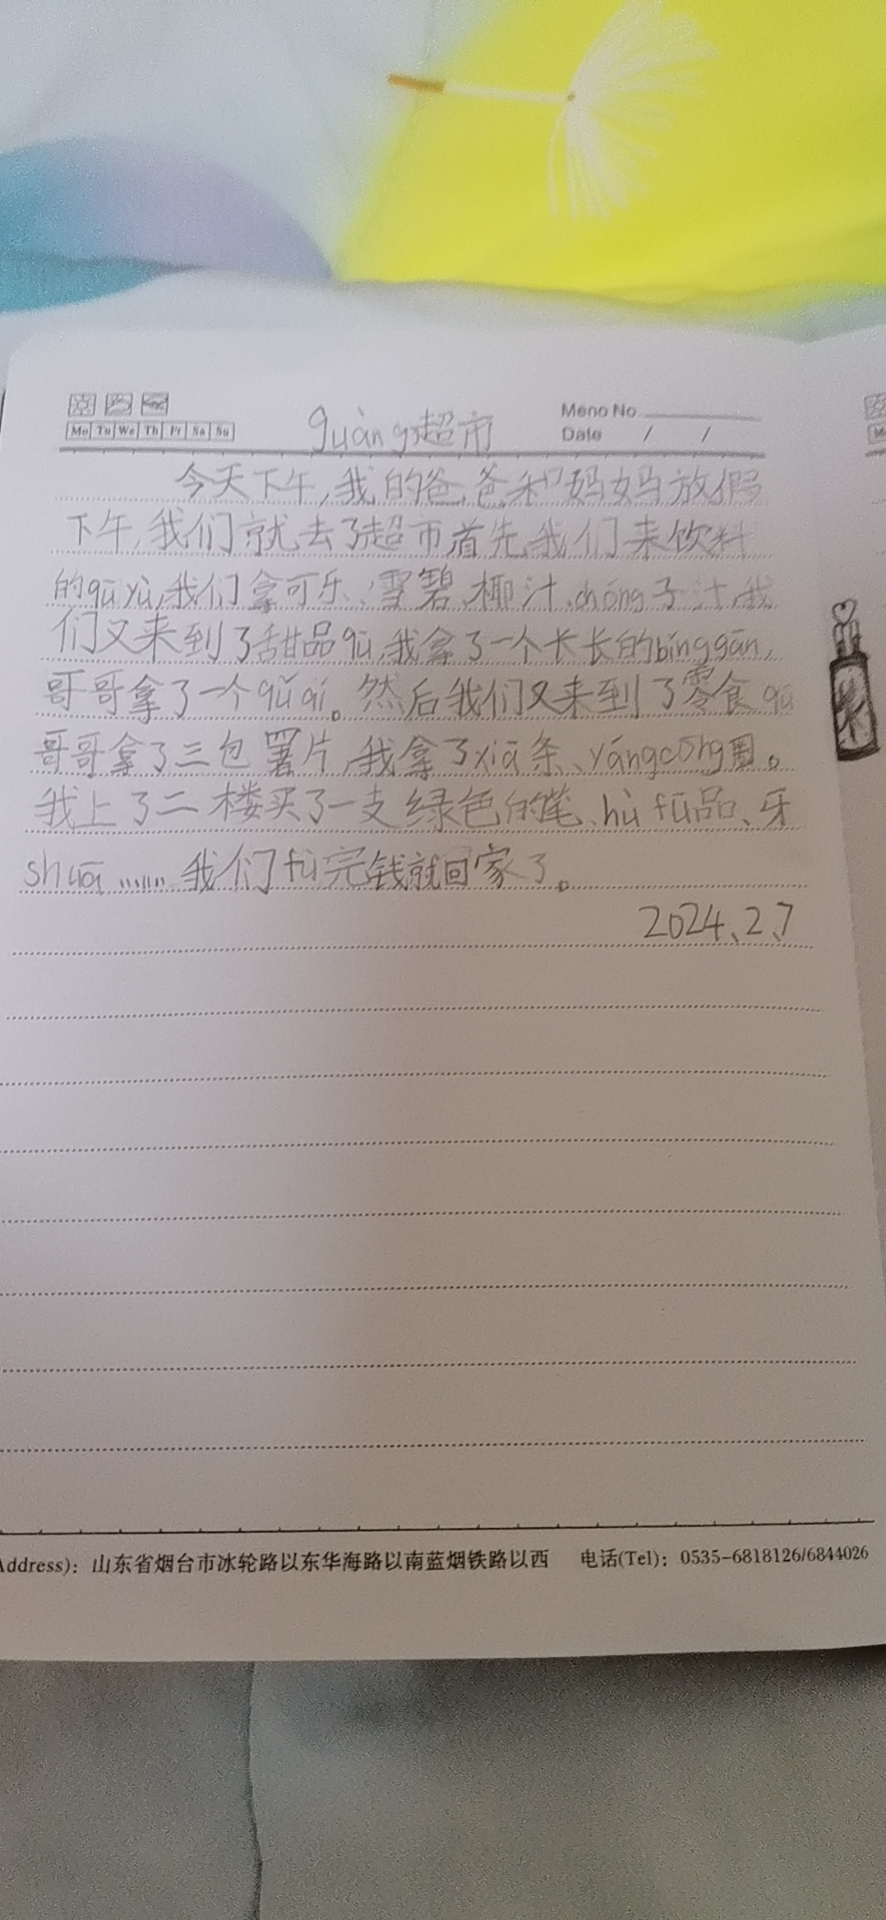 Mo Tu We Th Fr Sa Su
guàng超市
Meno No.
Date / /
今天下午,我的爸爸和妈妈放假
下午,我们就去了超市首先,我们来饮料
的qū yù,我们拿可乐、雪碧、椰汁、chóng子汁,我
们又来到了甜品qū,我拿了一个长长的bǐnggān,
哥哥拿了一个qǔ qí。然后我们又来到了零食qū
哥哥拿了三包薯片,我拿了xiā条、yángcōng圈。
我上了二楼买了一支绿色的笔、hù fū品、牙
shuā……我们fù完钱就回家了。
2024、2、7
Address): 山东省烟台市冰轮路以东华海路以南蓝烟铁路以西 电话(Tel): 0535-6818126/6844026